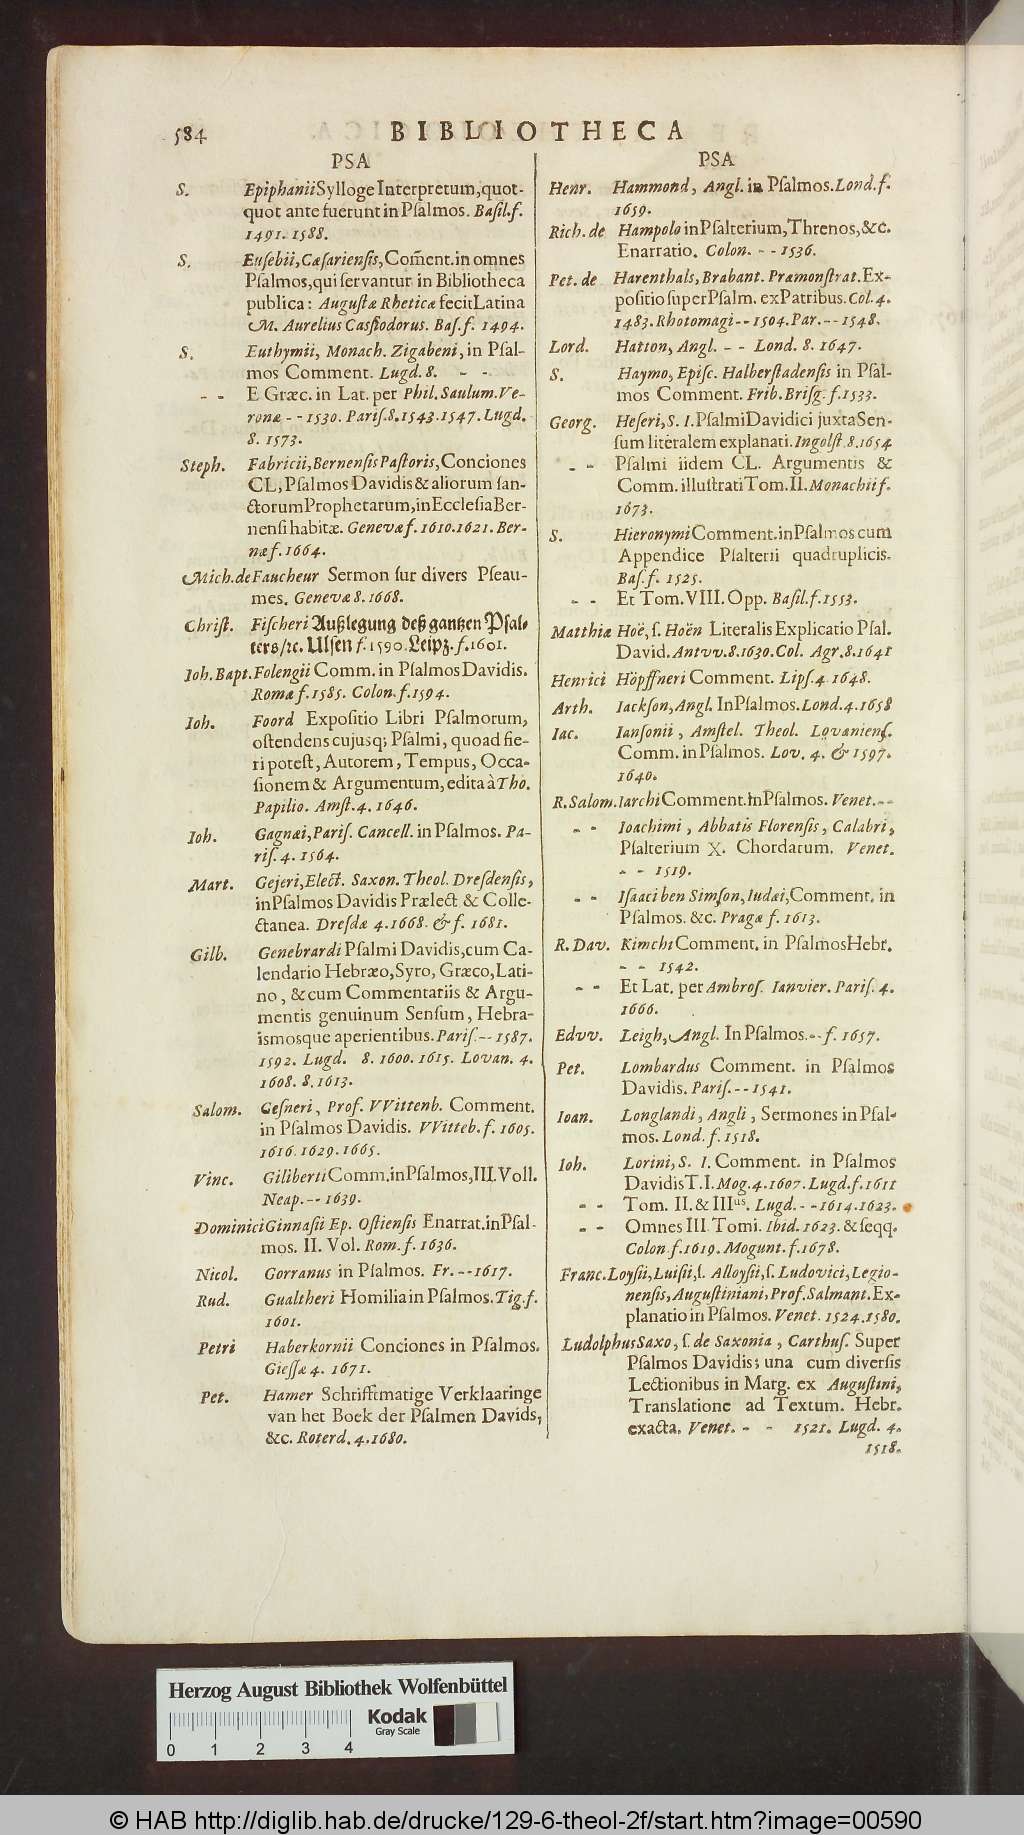 584
BIBLIOTHECA
PSA
S. Epiphanii Sylloge Interpretum, quot-
quot ante fuerunt in Pſalmos. Baſil. f.
1491. 1588.
S. Euſebii, Cæſarienſis, Com̃ent. in omnes
Pſalmos, qui ſervantur in Bibliotheca
publica: Auguſtæ Rheticæ fecit Latina
M. Aurelius Caſſiodorus. Baſ. f. 1494.
S. Euthymii, Monach. Zigabeni, in Pſal-
mos Comment. Lugd. 8. - -
- - E Græc. in Lat. per Phil. Saulum. Ve-
ronæ - - 1530. Pariſ. 8. 1543. 1547. Lugd.
8. 1573.
Steph. Fabricii, Bernenſis Paſtoris, Conciones
CL, Pſalmos Davidis & aliorum ſan-
ctorum Prophetarum, in Eccleſia Ber-
nenſi habitæ. Genevæ f. 1610. 1621. Ber-
næ f. 1664.
Mich. de Faucheur Sermon ſur divers Pſeau-
mes. Genevæ 8. 1668.
Chriſt. Fiſcheri Außlegung deß gantzen Pſal-
ters/ ꝛc. Ulſen f. 1590. Leipz. f. 1601.
Ioh. Bapt. Folengii Comm. in Pſalmos Davidis.
Romæ f. 1585. Colon. f. 1594.
Ioh. Foord Expoſitio Libri Pſalmorum,
oſtendens cujusq; Pſalmi, quoad fie-
ri poteſt, Autorem, Tempus, Occa-
ſionem & Argumentum, edita à Tho.
Papilio. Amſt. 4. 1646.
Ioh. Gagnæi, Pariſ. Cancell. in Pſalmos. Pa-
riſ. 4. 1564.
Mart. Gejeri, Elect. Saxon. Theol. Dresdenſis,
in Pſalmos Davidis Prælect & Colle-
ctanea. Dreſdæ 4. 1668. & f. 1681.
Gilb. Genebrardi Pſalmi Davidis, cum Ca-
lendario Hebræo, Syro, Græco, Lati-
no, & cum Commentariis & Argu-
mentis genuinum Senſum, Hebra-
ismosque aperientibus. Pariſ. - - 1587.
1592. Lugd. 8. 1600. 1615. Lovan. 4.
1608. 8. 1613.
Salom. Geſneri, Prof. VVittenb. Comment.
in Pſalmos Davidis. VVitteb. f. 1605.
1616. 1629. 1665.
Vinc. Giliberti Comm. in Pſalmos, III. Voll.
Neap. - - 1639.
Dominici Ginnaſii Ep. Oſtienſis Enarrat. in Pſal-
mos. II. Vol. Rom. f. 1636.
Nicol. Gorranus in Pſalmos. Fr. - - 1617.
Rud. Gualtheri Homilia in Pſalmos. Tig. f.
1601.
Petri Haberkornii Conciones in Pſalmos.
Gieſſæ 4. 1671.
Pet. Hamer Schrifftmatige Verklaaringe
van het Boek der Pſalmen Davids,
&c. Roterd. 4. 1680.
PSA
Henr. Hammond, Angl. in Pſalmos. Lond. f.
1659.
Rich. de Hampolo in Pſalterium, Threnos, &c.
Enarratio. Colon. - - 1536.
Pet. de Harenthals, Brabant. Præmonſtrat. Ex-
poſitio ſuper Pſalm. ex Patribus. Col. 4.
1483. Rhotomagi - - 1504. Par. - - 1548.
Lord. Hatton, Angl. - - Lond. 8. 1647.
S. Haymo, Epiſc. Halberſtadenſis in Pſal-
mos Comment. Frib. Briſg. f. 1533.
Georg. Heſeri, S. I. Pſalmi Davidici juxta Sen-
ſum literalem explanati. Ingolſt. 8. 1654
- - Pſalmi iidem CL. Argumentis &
Comm. illuſtrati Tom. II. Monachii f.
1673.
S. Hieronymi Comment. in Pſalmos cum
Appendice Pſalterii quadruplicis.
Baſ. f. 1525.
- - Et Tom. VIII. Opp. Baſil. f. 1553.
Matthiæ Hoë, ſ. Hoën Literalis Explicatio Pſal.
David. Antvv. 8. 1630. Col. Agr. 8. 1641
Henrici Höpffneri Comment. Lipſ. 4. 1648.
Arth. Iackſon, Angl. In Pſalmos. Lond. 4. 1658
Iac. Ianſonii, Amſtel. Theol. Lovanienſ.
Comm. in Pſalmos. Lov. 4. & 1597.
1640.
R. Salom. Iarchi Comment. in Pſalmos. Venet. - -
- - Ioachimi, Abbatis Florenſis, Calabri,
Pſalterium X. Chordarum. Venet.
- - 1519.
- - Iſaaci ben Simſon, Iudæi, Comment. in
Pſalmos. &c. Pragæ f. 1613.
R. Dav. Kimchi Comment. in Pſalmos Hebr.
- - 1542.
- - Et Lat. per Ambroſ. Ianvier. Pariſ. 4.
1666.
Edvv. Leigh, Angl. In Pſalmos. - - f. 1657.
Pet. Lombardus Comment. in Pſalmos
Davidis. Pariſ. - - 1541.
Ioan. Longlandi, Angli, Sermones in Pſal-
mos. Lond. f. 1518.
Ioh. Lorini, S. I. Comment. in Pſalmos
Davidis T. I. Mog. 4. 1607. Lugd. f. 1611
- - Tom. II. & IIIus. Lugd. - - 1614. 1623.
- - Omnes III. Tomi. Ibid. 1623. & ſeqq.
Colon f. 1619. Mogunt. f. 1678.
Franc. Loyſii, Luiſii, ſ. Alloyſii, ſ. Ludovici, Legio-
nenſis, Auguſtiniani, Prof. Salmant. Ex-
planatio in Pſalmos. Venet. 1524. 1580.
Ludolphus Saxo, ſ. de Saxonia, Carthuſ. Super
Pſalmos Davidis; una cum diverſis
Lectionibus in Marg. ex Auguſtini,
Translatione ad Textum. Hebr.
exacta. Venet. - - 1521. Lugd. 4.
1518.
Herzog August Bibliothek Wolfenbüttel
Kodak
Gray Scale
0 1 2 3 4
© HAB http://diglib.hab.de/drucke/129-6-theol-2f/start.htm?image=00590